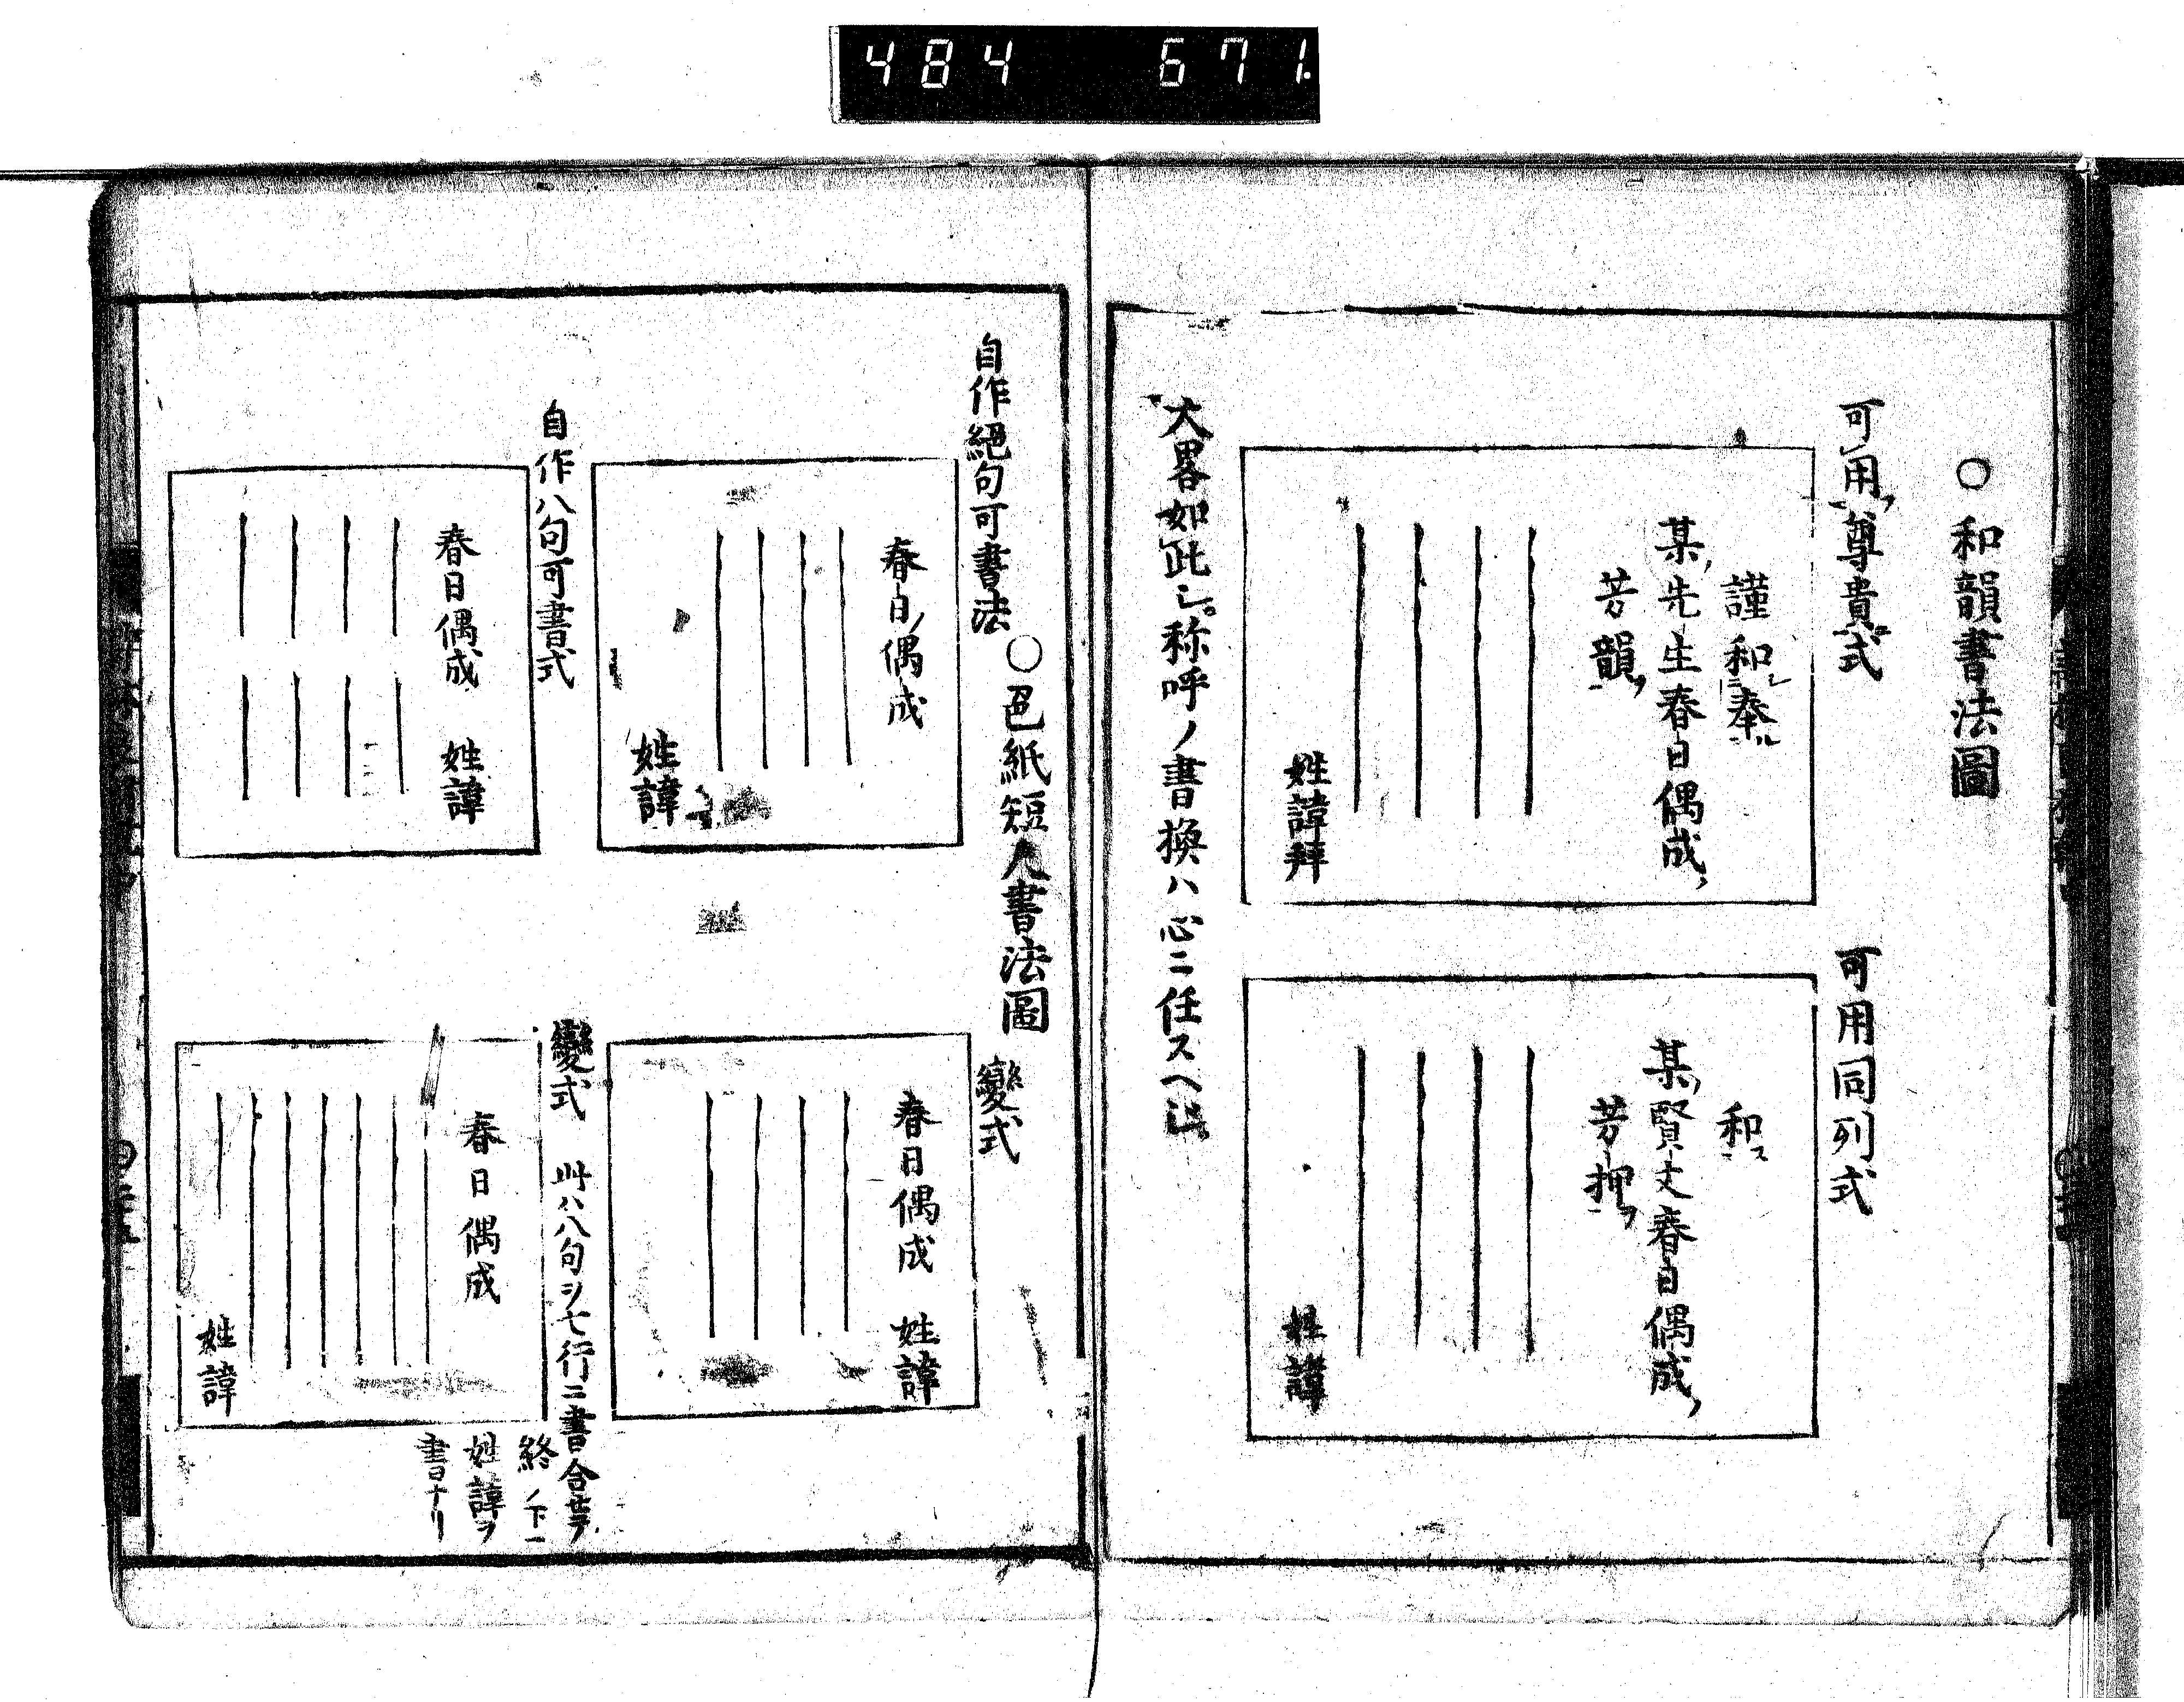 484 671.
○和韻書法圖
可用尊貴式
謹和奉ル
某先生春日偶成
芳韻
姓諱拜
可用同列式
和ス
某賢丈春日偶成
芳押
姓諱
大畧如此シ。称呼ノ書換ハ心ニ任スヘシ。
○色紙短尺書法圖
自作絕句可書法
春日偶成
姓諱
變式
春日偶成 姓諱
自作八句可書式
春日偶成 姓諱
變式 此ハ八句ヲ七行ニ書合
終ノ下ニ
姓諱ヲ
書ナリ
春日偶成
姓諱